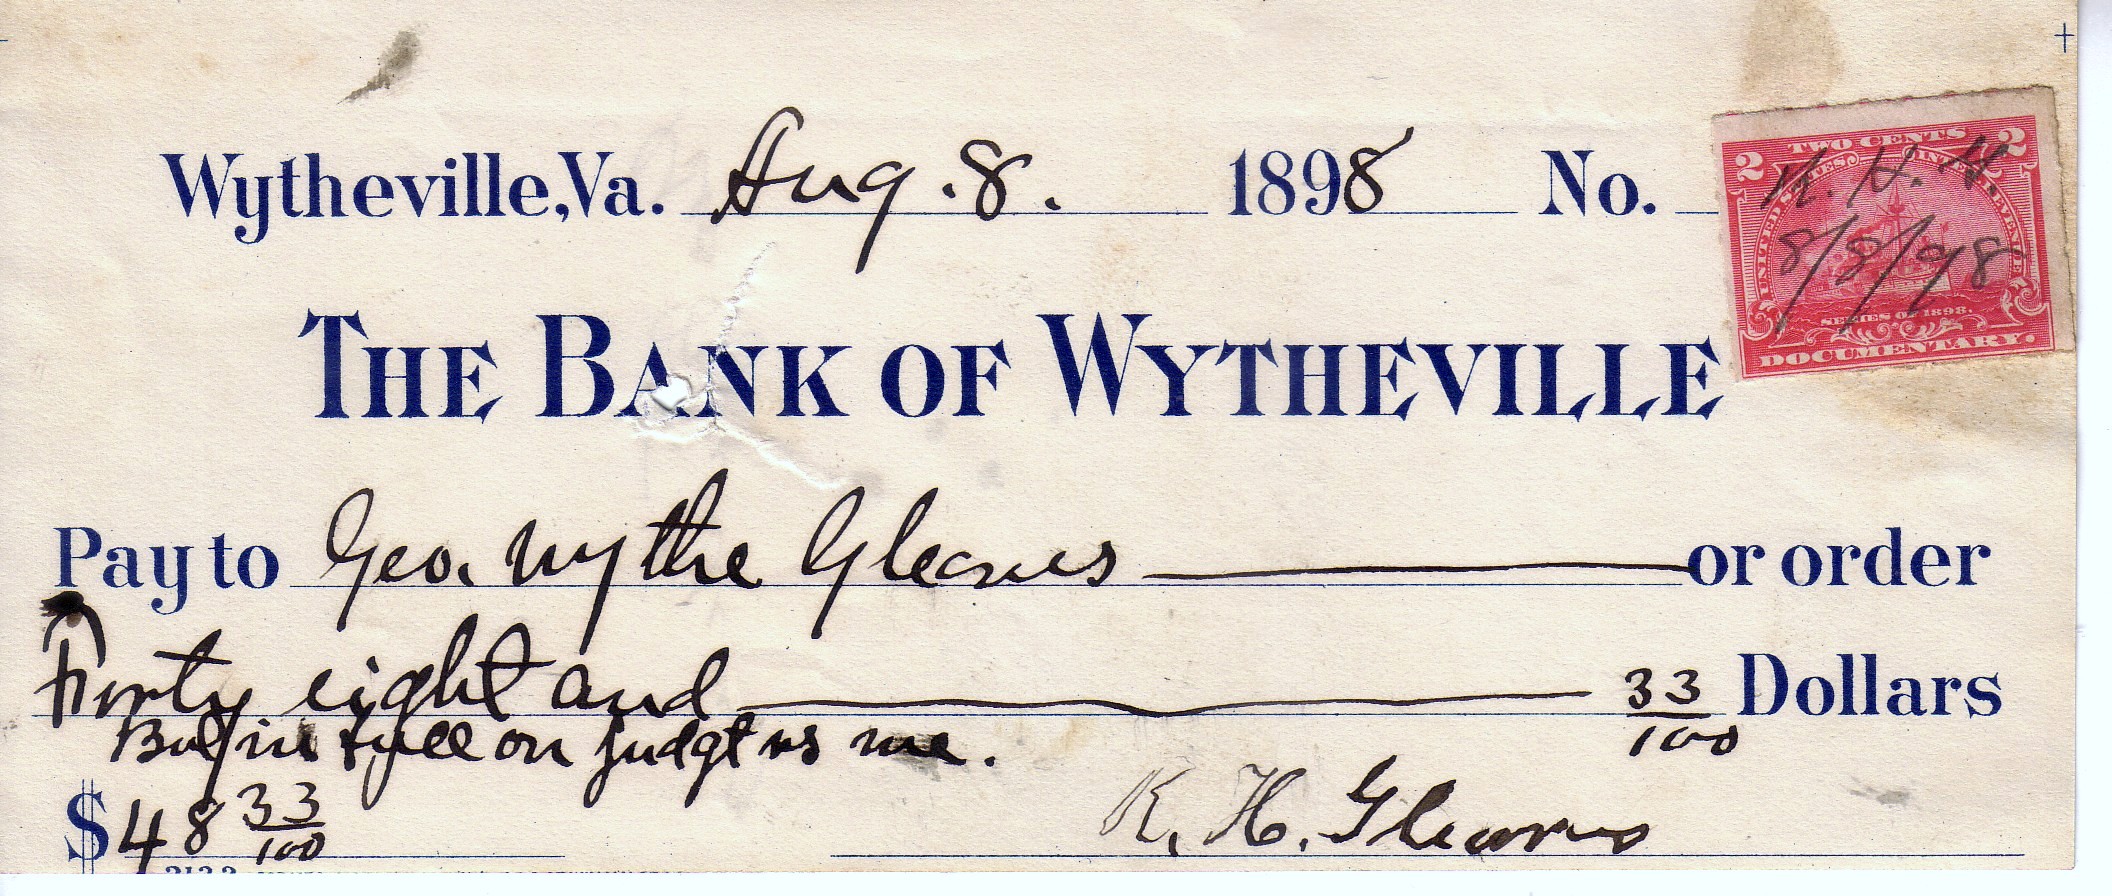 Wytheville, Va. Aug. 8. 1898 No.
2 TWO CENTS 2
UNITED STATES INTERNAL REVENUE
8/8/98
SERIES OF 1898.
DOCUMENTARY.
THE BANK OF WYTHEVILLE
Pay to Geo. Wythe Gleaves or order
Forty eight and 33/100 Dollars
Bal in full on judgt vs me.
$48 33/100
R. H. Gleaves